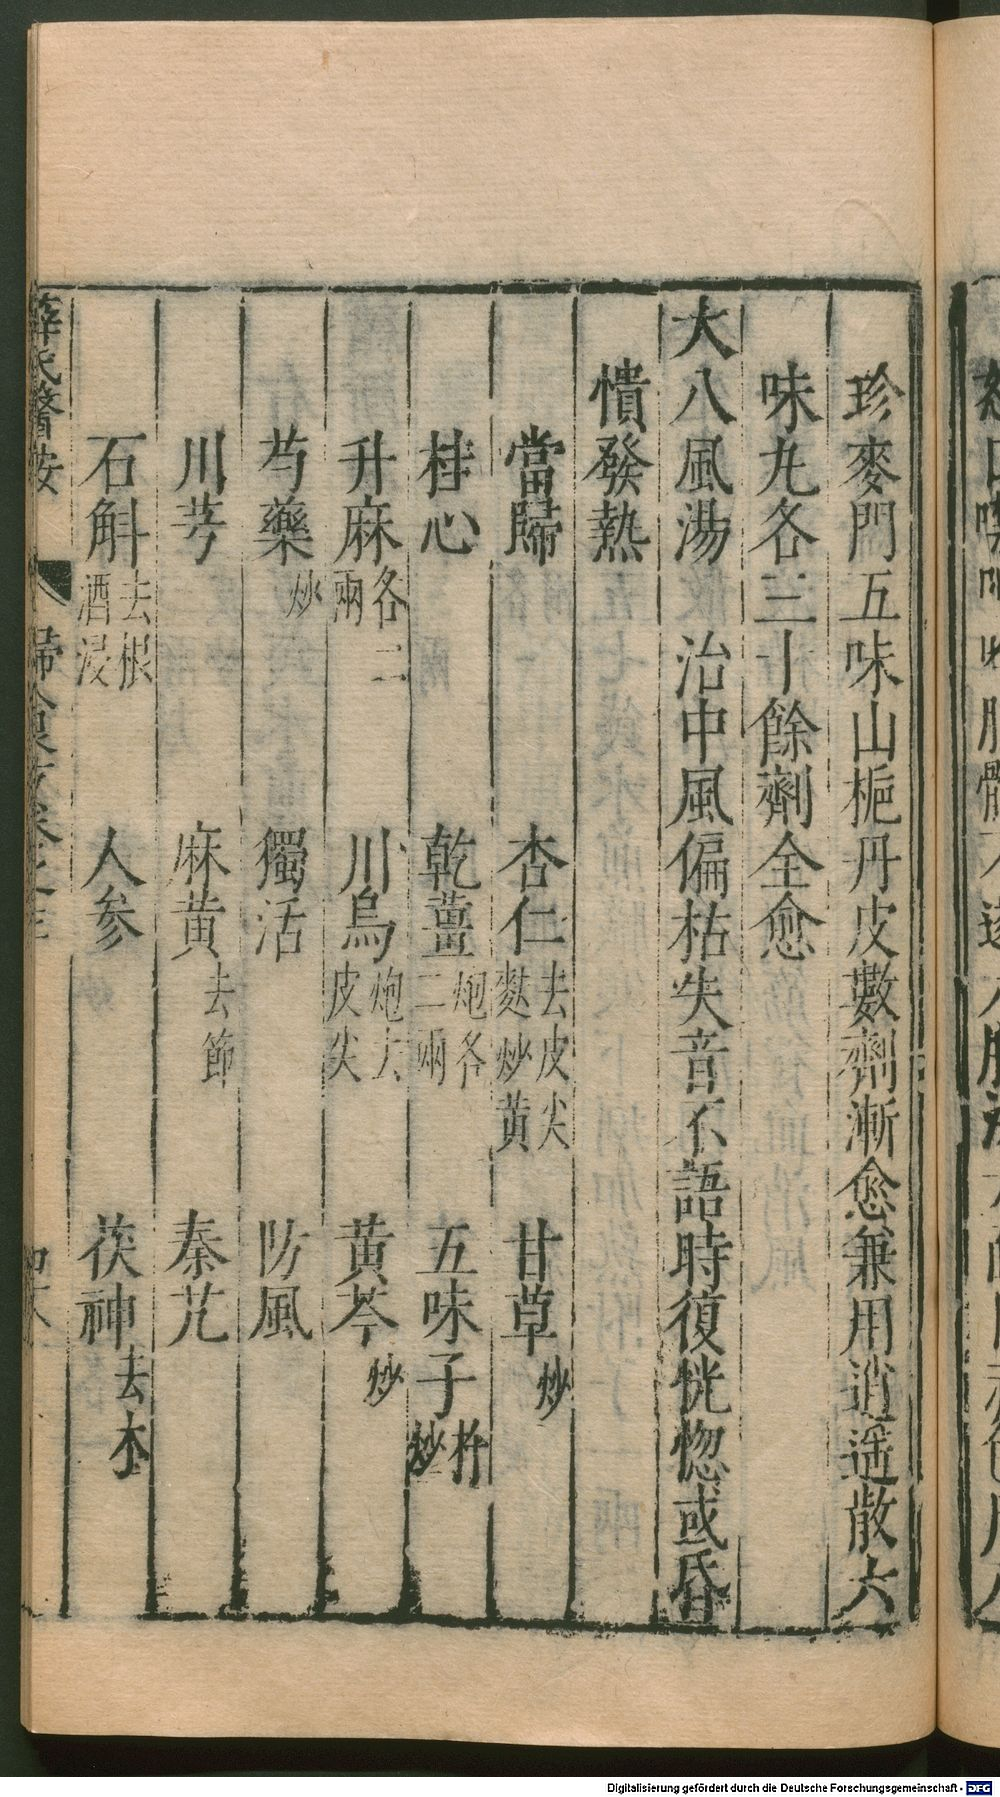 珍麥門五味山梔丹皮數劑漸愈兼用逍遥散六
味丸各三十餘劑全愈
大八風湯 治中風偏枯失音不語時復恍惚或昏
憒發熱
當歸 杏仁去皮尖麩炒黃 甘草炒
桂心 乾薑炮各二兩 五味子杵炒
升麻各二兩 川烏炮去皮尖 黃芩炒
芍藥炒 獨活 防風
川芎 麻黃去節 秦艽
石斛去根酒浸 人參 茯神去木
薛氏醫按
Digitalisierung gefördert durch die Deutsche Forschungsgemeinschaft - DFG